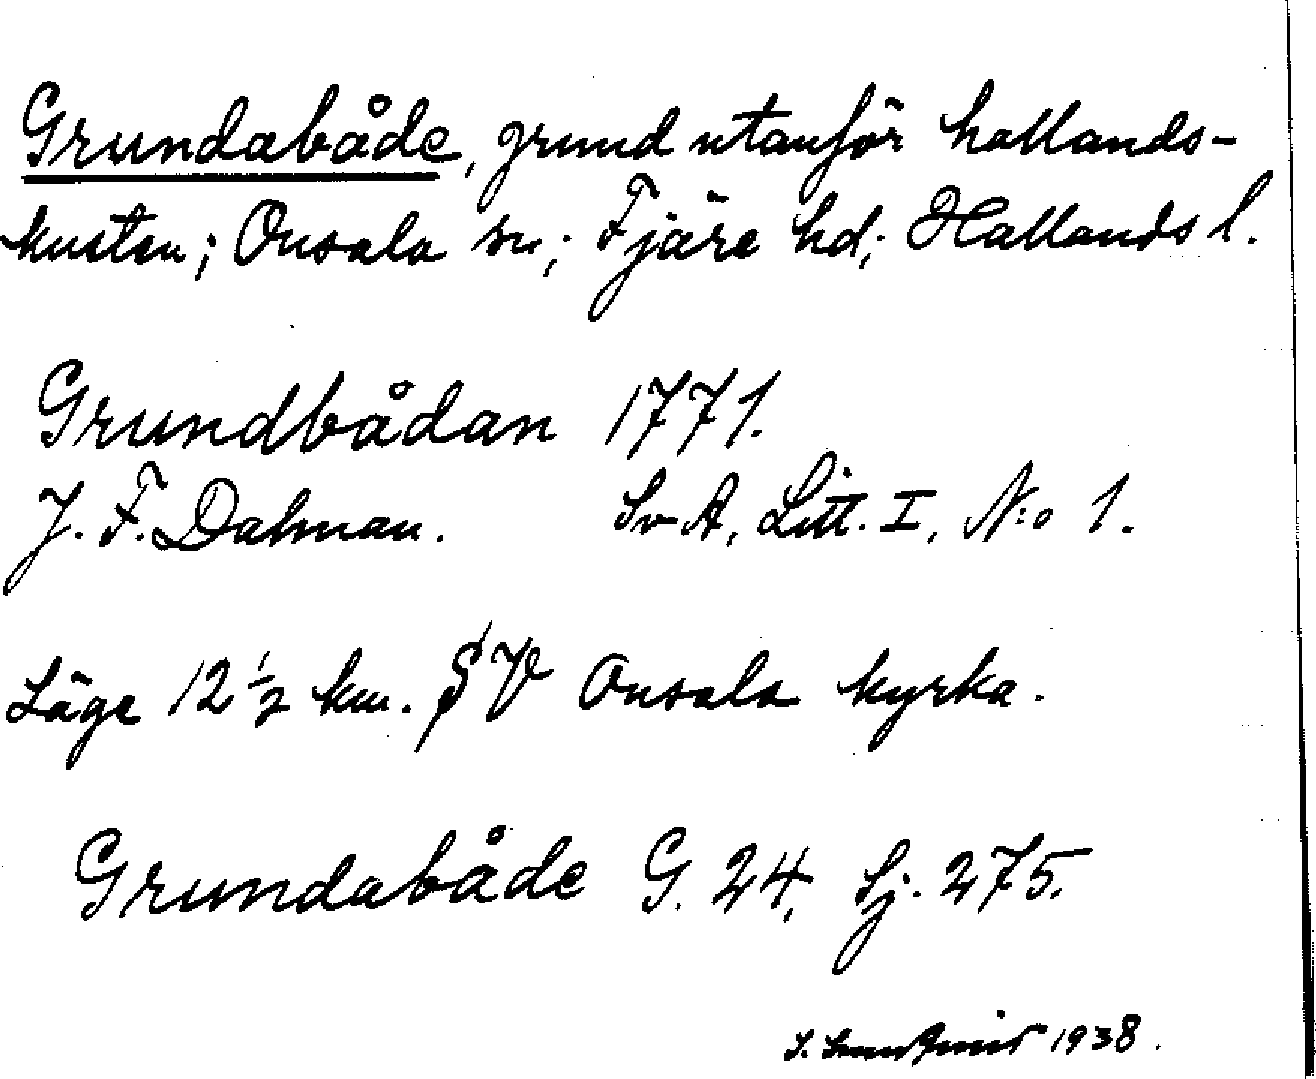 Grundabåde, grund utanför hallands-
kusten; Onsala sn; Fjäre hd; Hallands l.
Grundbådan 1771.
J. F. Dalman. Sv A, Litt. I, N:o 1.
Läge 12 ½ km. SV Onsala kyrka.
Grundabåde G. 24, Sj. 275.
1938.